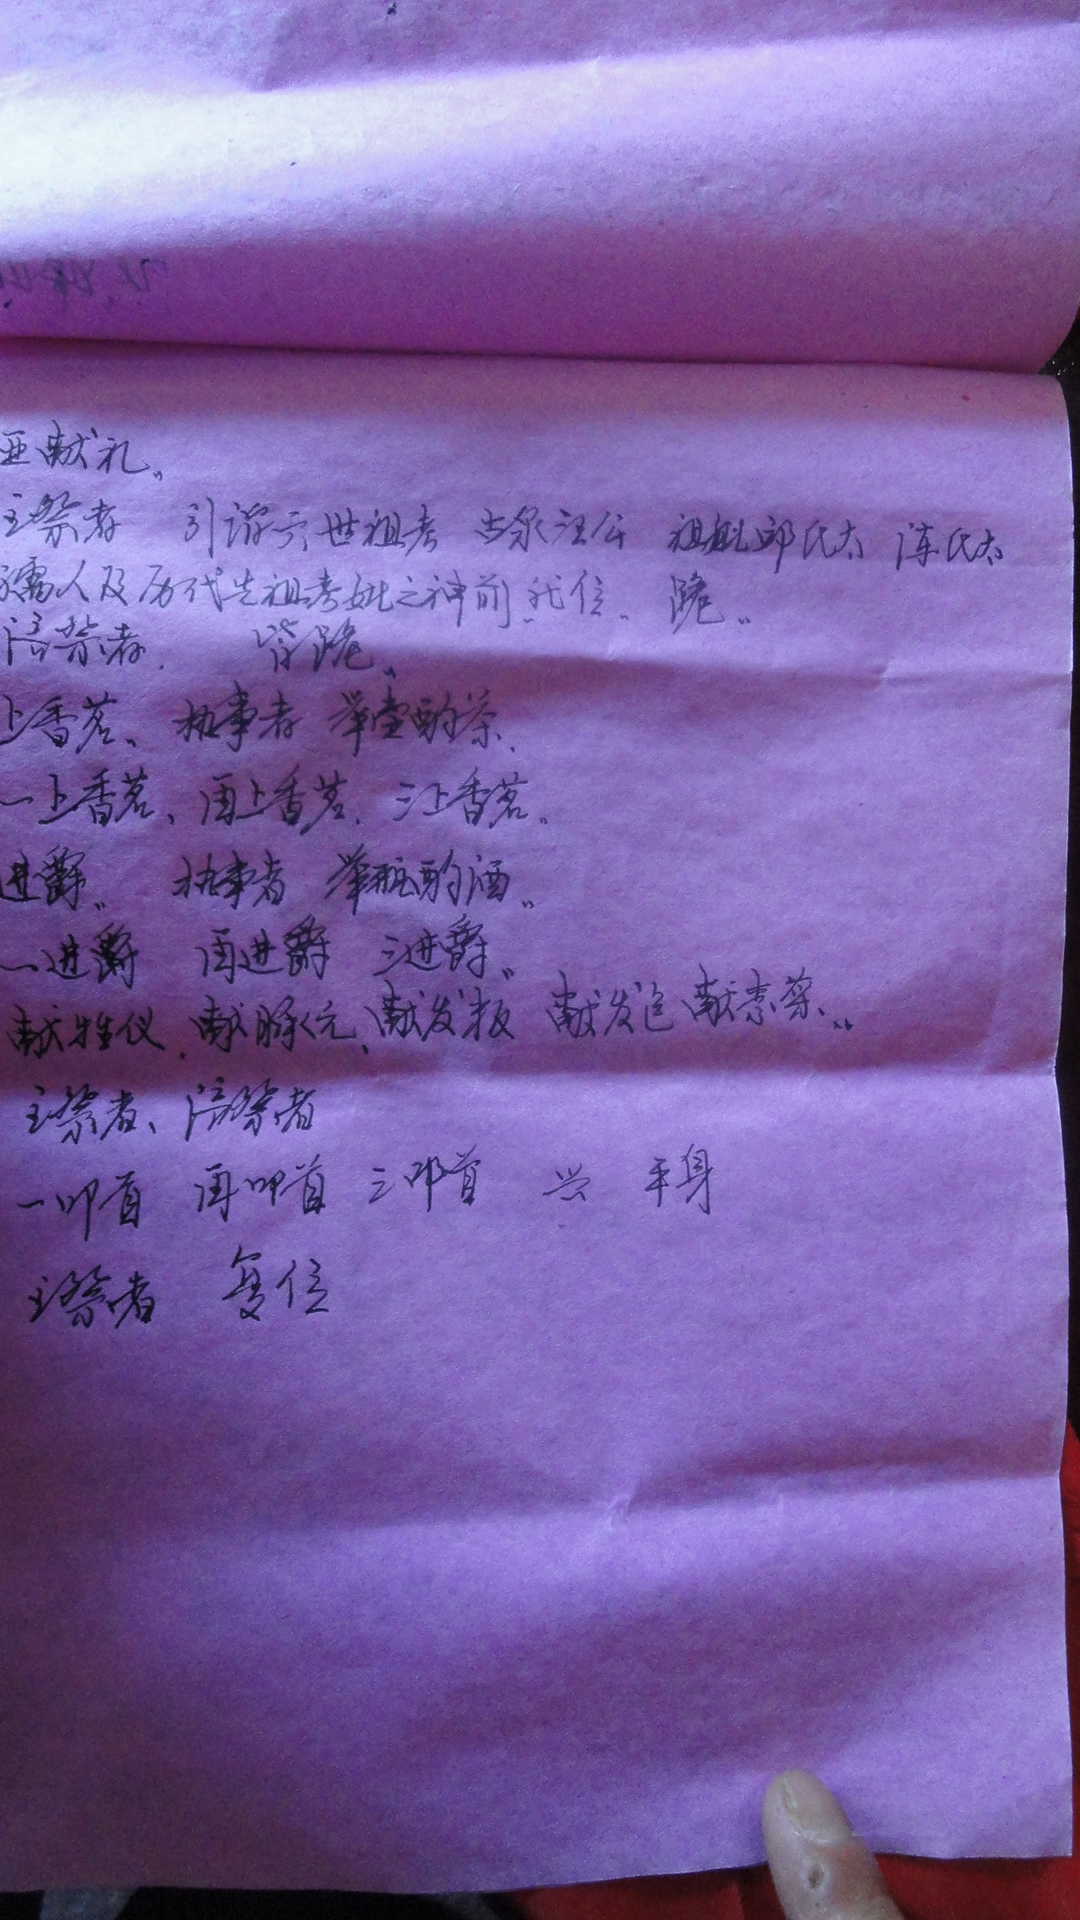 亚献礼。
主祭者 引诣六世祖考 古泉汪公 祖妣邱氏太 陈氏太
孺人及历代先祖考妣之神前 就位。 跪。
陪祭者. 皆跪、
上香茗、执事者 举壶酌茶.
一上香茗、再上香茗. 三上香茗。
进爵。 执事者 举瓶酌酒。
一进爵 再进爵 三进爵。
献牲仪.献豚元、献发板 献发包 献素菜、。
主祭者、陪祭者
一叩首 再叩首 三叩首 兴 平身
主祭者 复位